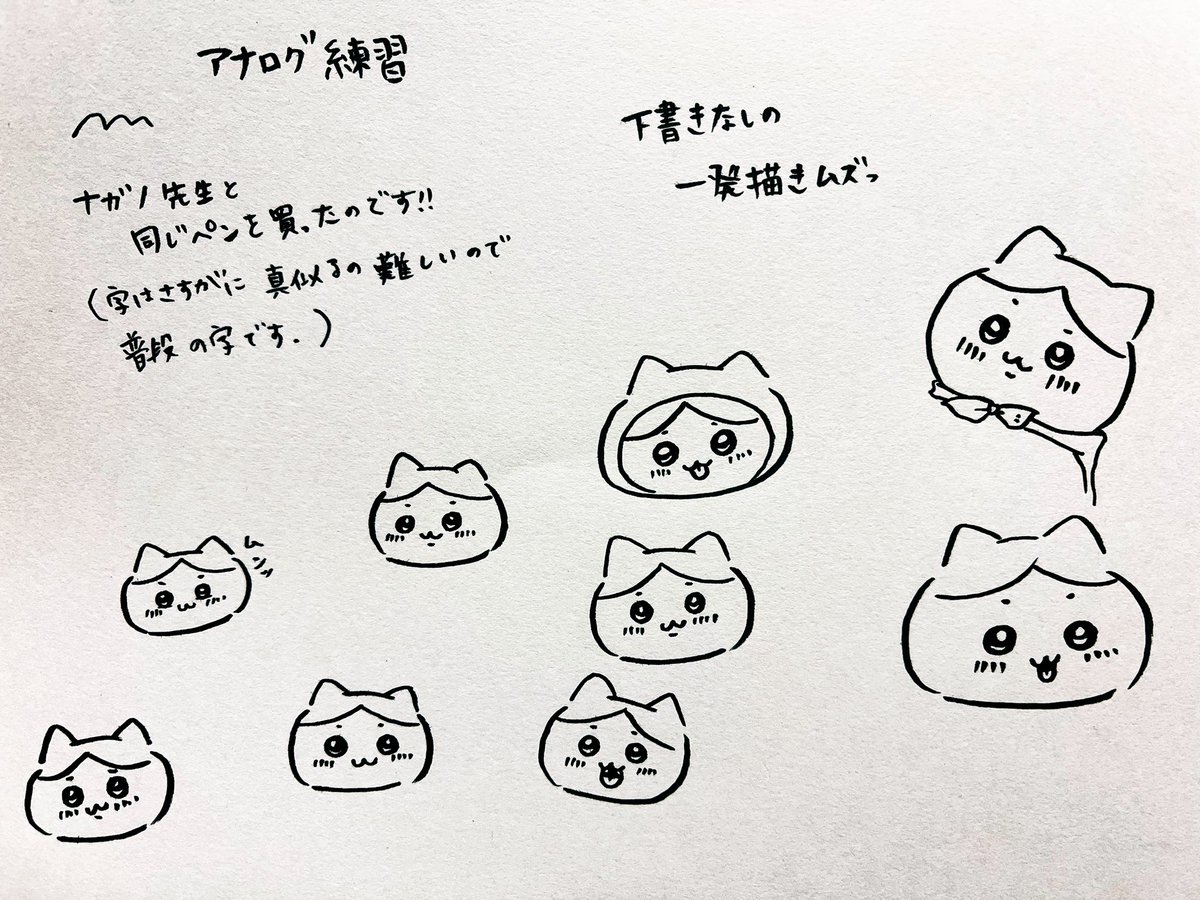 アナログ練習
ナガノ先生と
同じペンを買ったのです!!
(字はさすがに真似るの難しいので
普段の字です.)
下書きなしの
一発描きムズっ
ムンッ